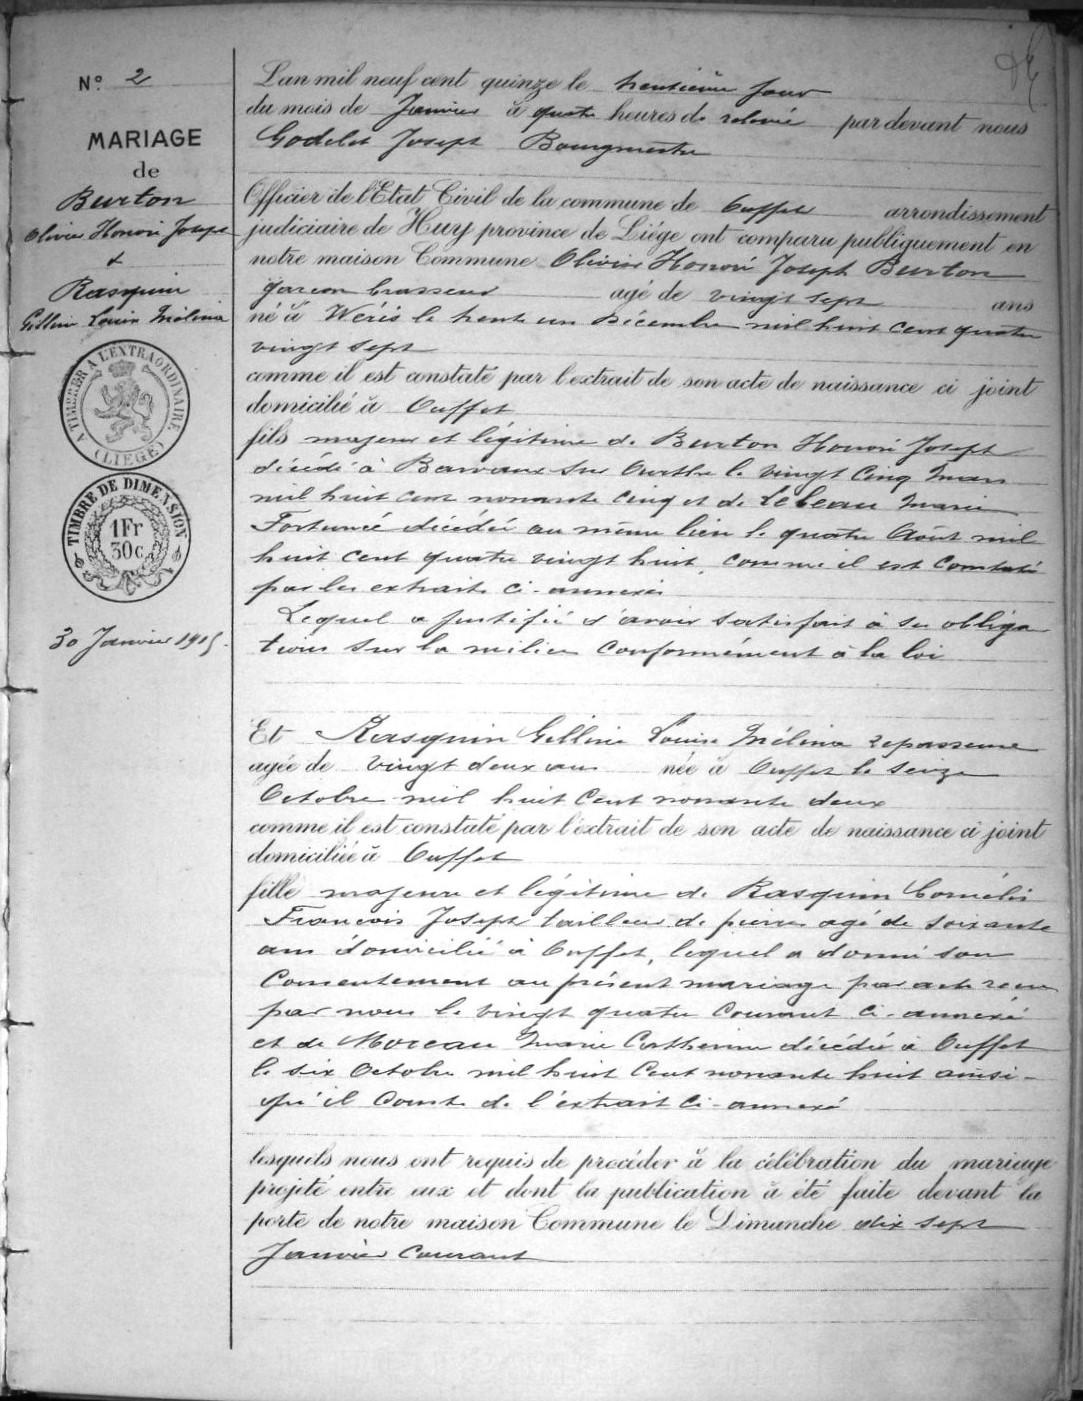 N° 2
MARIAGE
de
Burton
Olivier Honoré Joseph
&
Rasquin
Gelline Louise Mélina
A TIMBRER A L'EXTRAORDINAIRE
(LIÉGE)
TIMBRE DE DIMENSION
1Fr
30c
30 Janvier 1915.
L'an mil neuf cent quinze le trentième jour
du mois de Janvier à quatre heures de relevée par devant nous
Godelet Joseph Bourgmestre
Officier de l'Etat Civil de la commune de Ouffet arrondissement
judiciaire de Huy province de Liége ont comparu publiquement en
notre maison Commune Olivier Honoré Joseph Burton
garçon brasseur agé de vingt sept ans
né à Wéris le trente un Décembre mil huit cent quatre
vingt sept
comme il est constaté par l'extrait de son acte de naissance ci joint
domicilié à Ouffet
fils majeur et légitime de Burton Honoré Joseph
décédé à Barvaux sur Ourthe le vingt cinq mars
mil huit cent nonante cinq et de Lebeau Marie
Fortunée décédée au même lieu le quatre Août mil
huit cent quatre vingt huit, comme il est constaté
par les extraits ci-annexés
Lequel a justifié d'avoir satisfait à ses obliga
tions sur la milice conformément à la loi
Et Rasquin Gelline Louise Mélina repasseuse
agée de vingt deux ans née à Ouffet le seize
Octobre mil huit cent nonante deux
comme il est constaté par l'extrait de son acte de naissance ci joint
domiciliée à Ouffet
fille majeure et légitime de Rasquin Cornélis
François Joseph tailleur de pierres agé de soixante
ans domicilié à Ouffet, lequel a donné son
consentement au présent mariage par acte reçu
par nous le vingt quatre courant ci-annexé
et de Moreau Marie Catherine décédée à Ouffet
le six Octobre mil huit cent nonante huit ainsi-
qu'il conste de l'extrait ci-annexé
lesquels nous ont requis de procéder à la célébration du mariage
projeté entre eux et dont la publication à été faite devant la
porte de notre maison Commune le Dimanche dix sept
Janvier courant